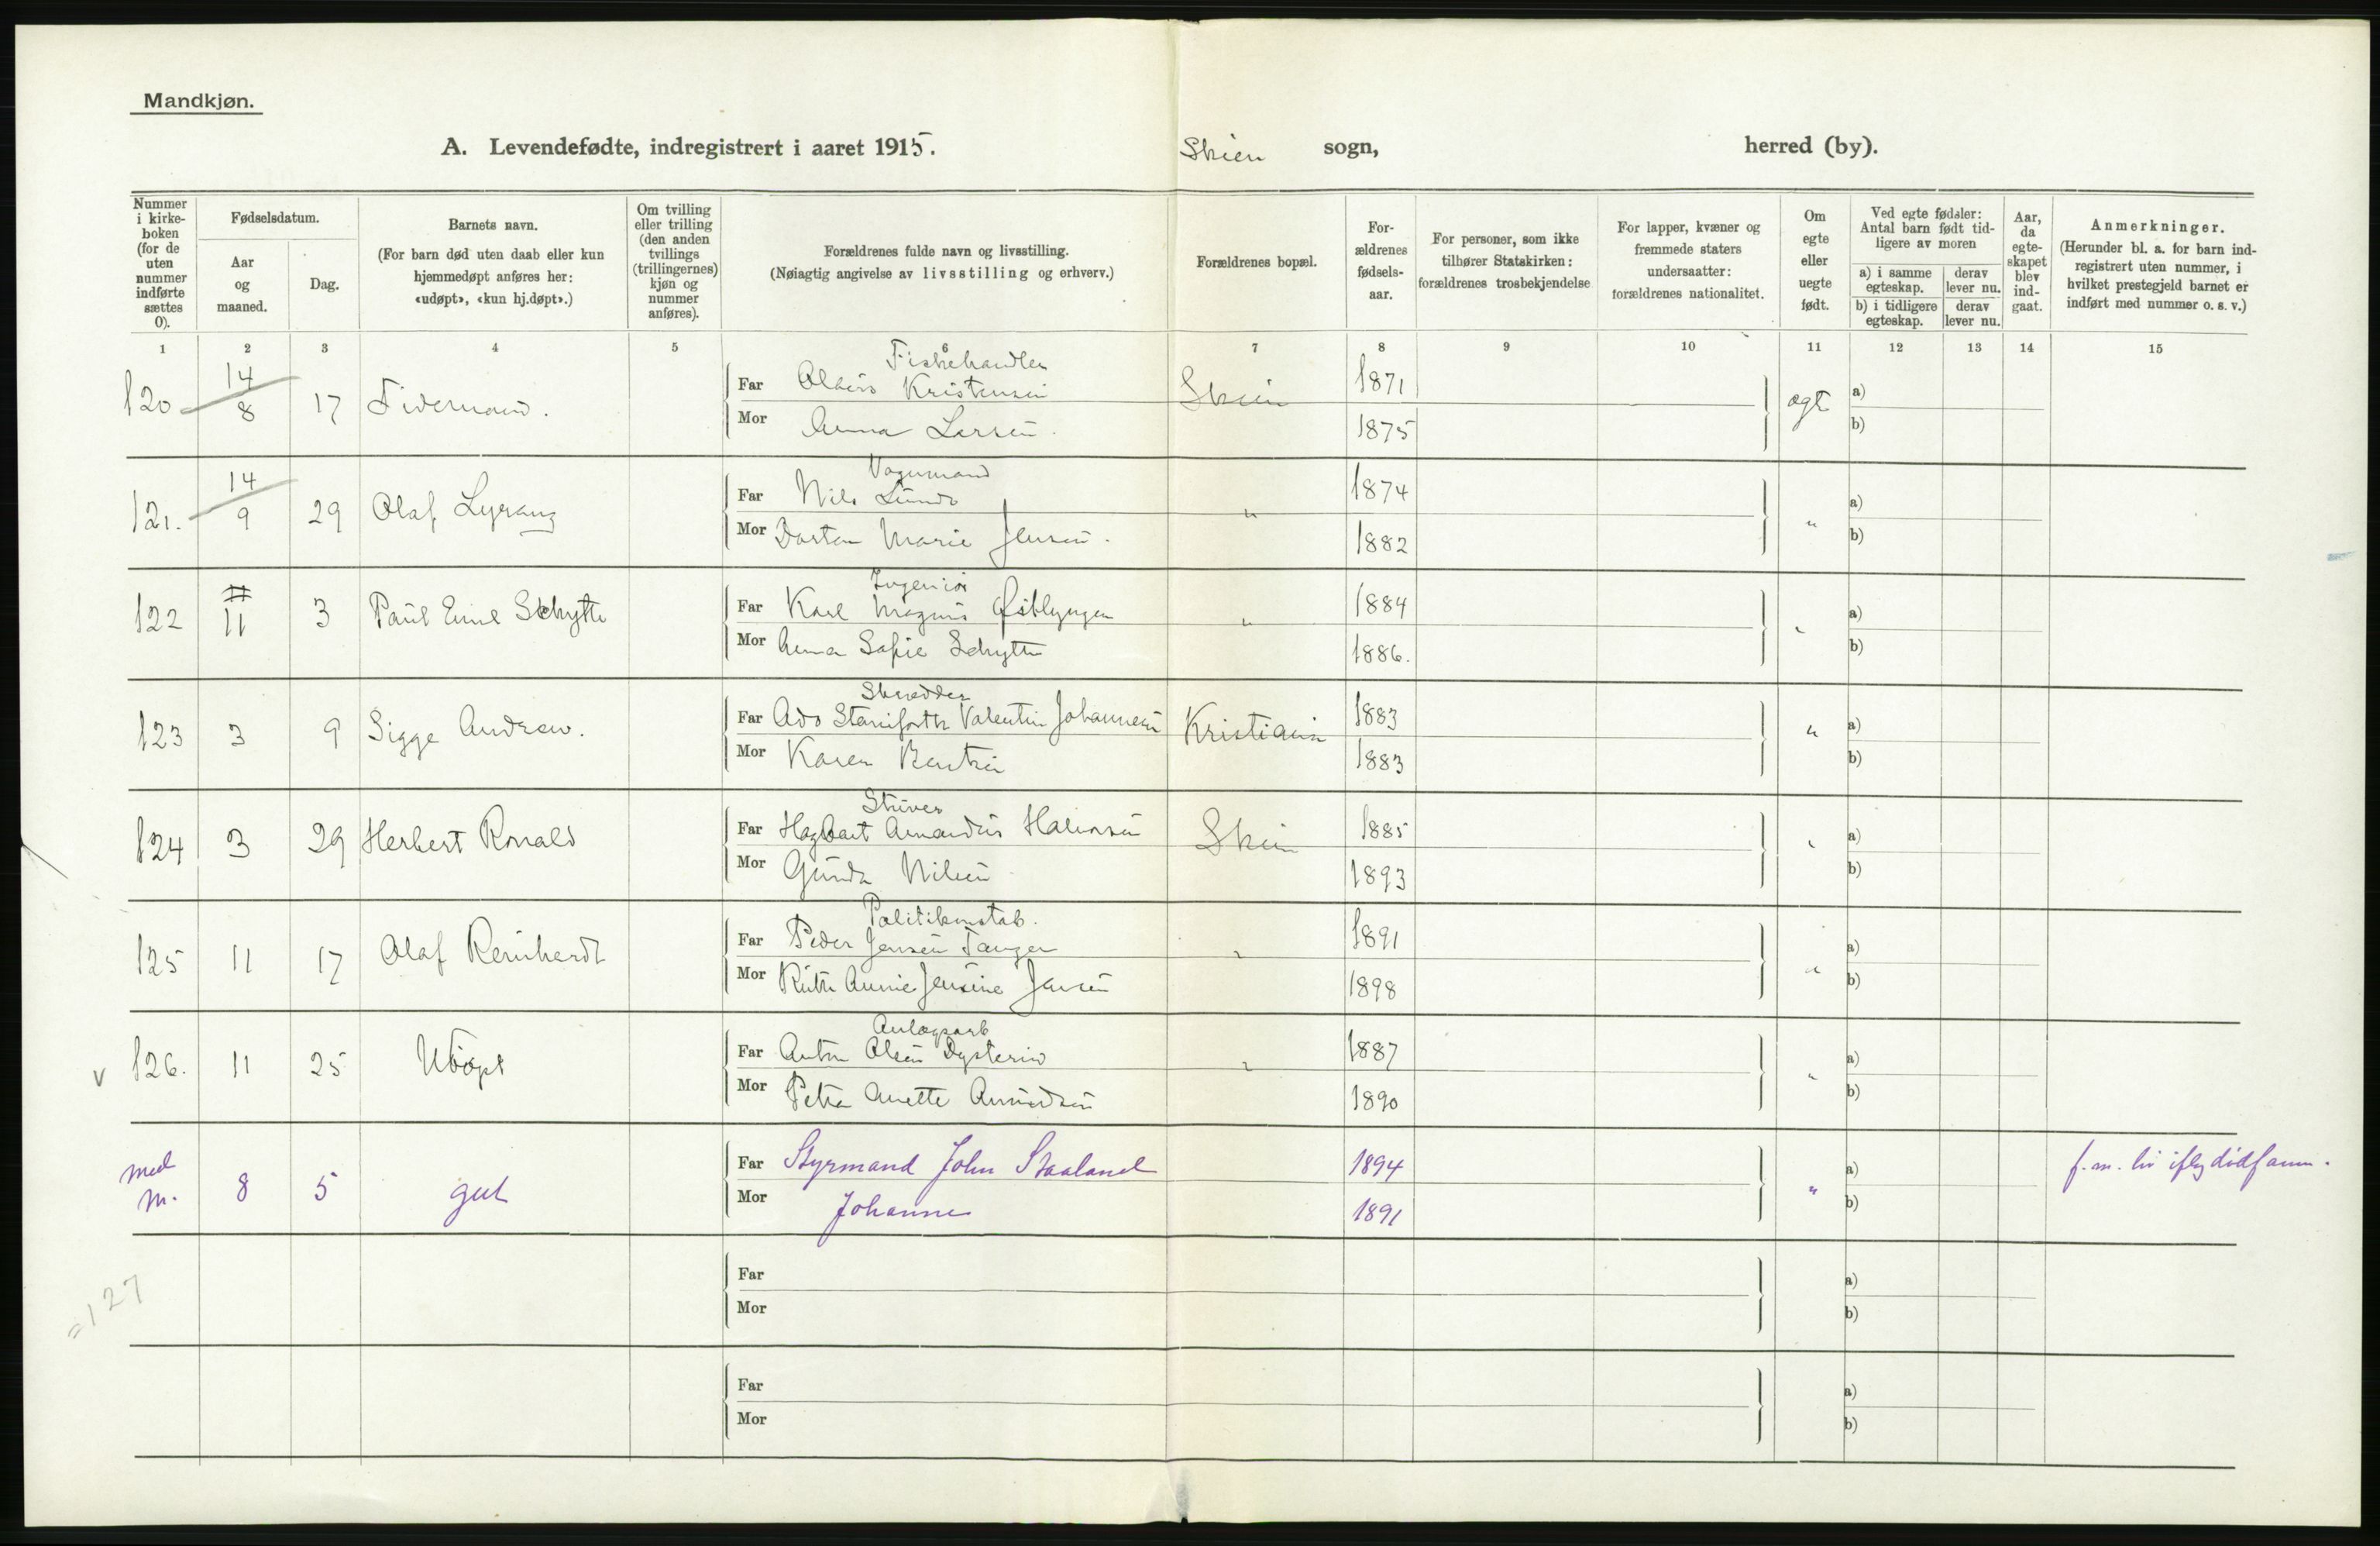 Mandkjøn.
A. Levendefødte, indregistrert i aaret 1915. Skien sogn, herred (by).
Nummer i kirke-boken (for de uten nummer indførte sættes 0).
Fødselsdatum.
Aar og maaned.
Dag.
Barnets navn.
(For barn død uten daab eller kun hjemmedøpt anføres her: «udøpt», «kun hj.døpt».)
Om tvilling eller trilling (den anden tvillings (trillingernes) kjøn og nummer anføres).
Forældrenes fulde navn og livsstilling.
(Nøiagtig angivelse av livsstilling og erhverv.)
Forældrenes bopæl.
For-ældrenes fødsels-aar.
For personer, som ikke tilhører Statskirken: forældrenes trosbekjendelse
For lapper, kvæner og fremmede staters undersaatter: forældrenes nationalitet.
Om egte eller uegte født.
Ved egte fødsler: Antal barn født tid-ligere av moren
a) i samme egteskap.
derav lever nu.
b) i tidligere egteskap.
derav lever nu.
Aar, da egte-skapet blev ind-gaat.
Anmerkninger.
(Herunder bl. a. for barn ind-registrert uten nummer, i hvilket prestegjeld barnet er indført med nummer o. s. v.)
1 2 3 4 5 6 7 8 9 10 11 12 13 14 15
Fiskehandler
120 14/8 17 Far Kristensen Skien 1871 ægte a)
Mor Anna Larsen. 1875 b)
Vognmand
121. 14/9 29 Olaf Far Nils Lunds " 1874 " a)
Mor Marie Jensen. 1882 b)
Ingeniør
122 11 3 Paul Emil Schytte Far Karl Magnus " 1884 " a)
Mor Anna Sofie Schytte 1886. b)
Skredder
123 3 9 Sigge Andrew. Far Valentin Johannesen Kristiania 1883 " a)
Mor Karen 1883 b)
Skriver
124 3 29 Herbert Ronald Far Hagbart Amandus Halvorsen Skien 1885 " a)
Mor Gunda Nilsen 1893 b)
Politikonstab.
125 11 17 Olaf Reinhardt Far Peder Jensen Tangen " 1891 " a)
Mor Ruth Annie Jensine Jensen 1898 b)
Anlægsarb
v 126. 11 25 Udøpt Far Anton Olsen " 1887 " a)
Mor Petra Anette Amundsen 1890 b)
med m. 8 5 gut Far Styrmand John Staaland 1894 " a) f. m. liv
Mor Johanne 1891 b)
= 127
Far a)
Mor b)
Far a)
Mor b)